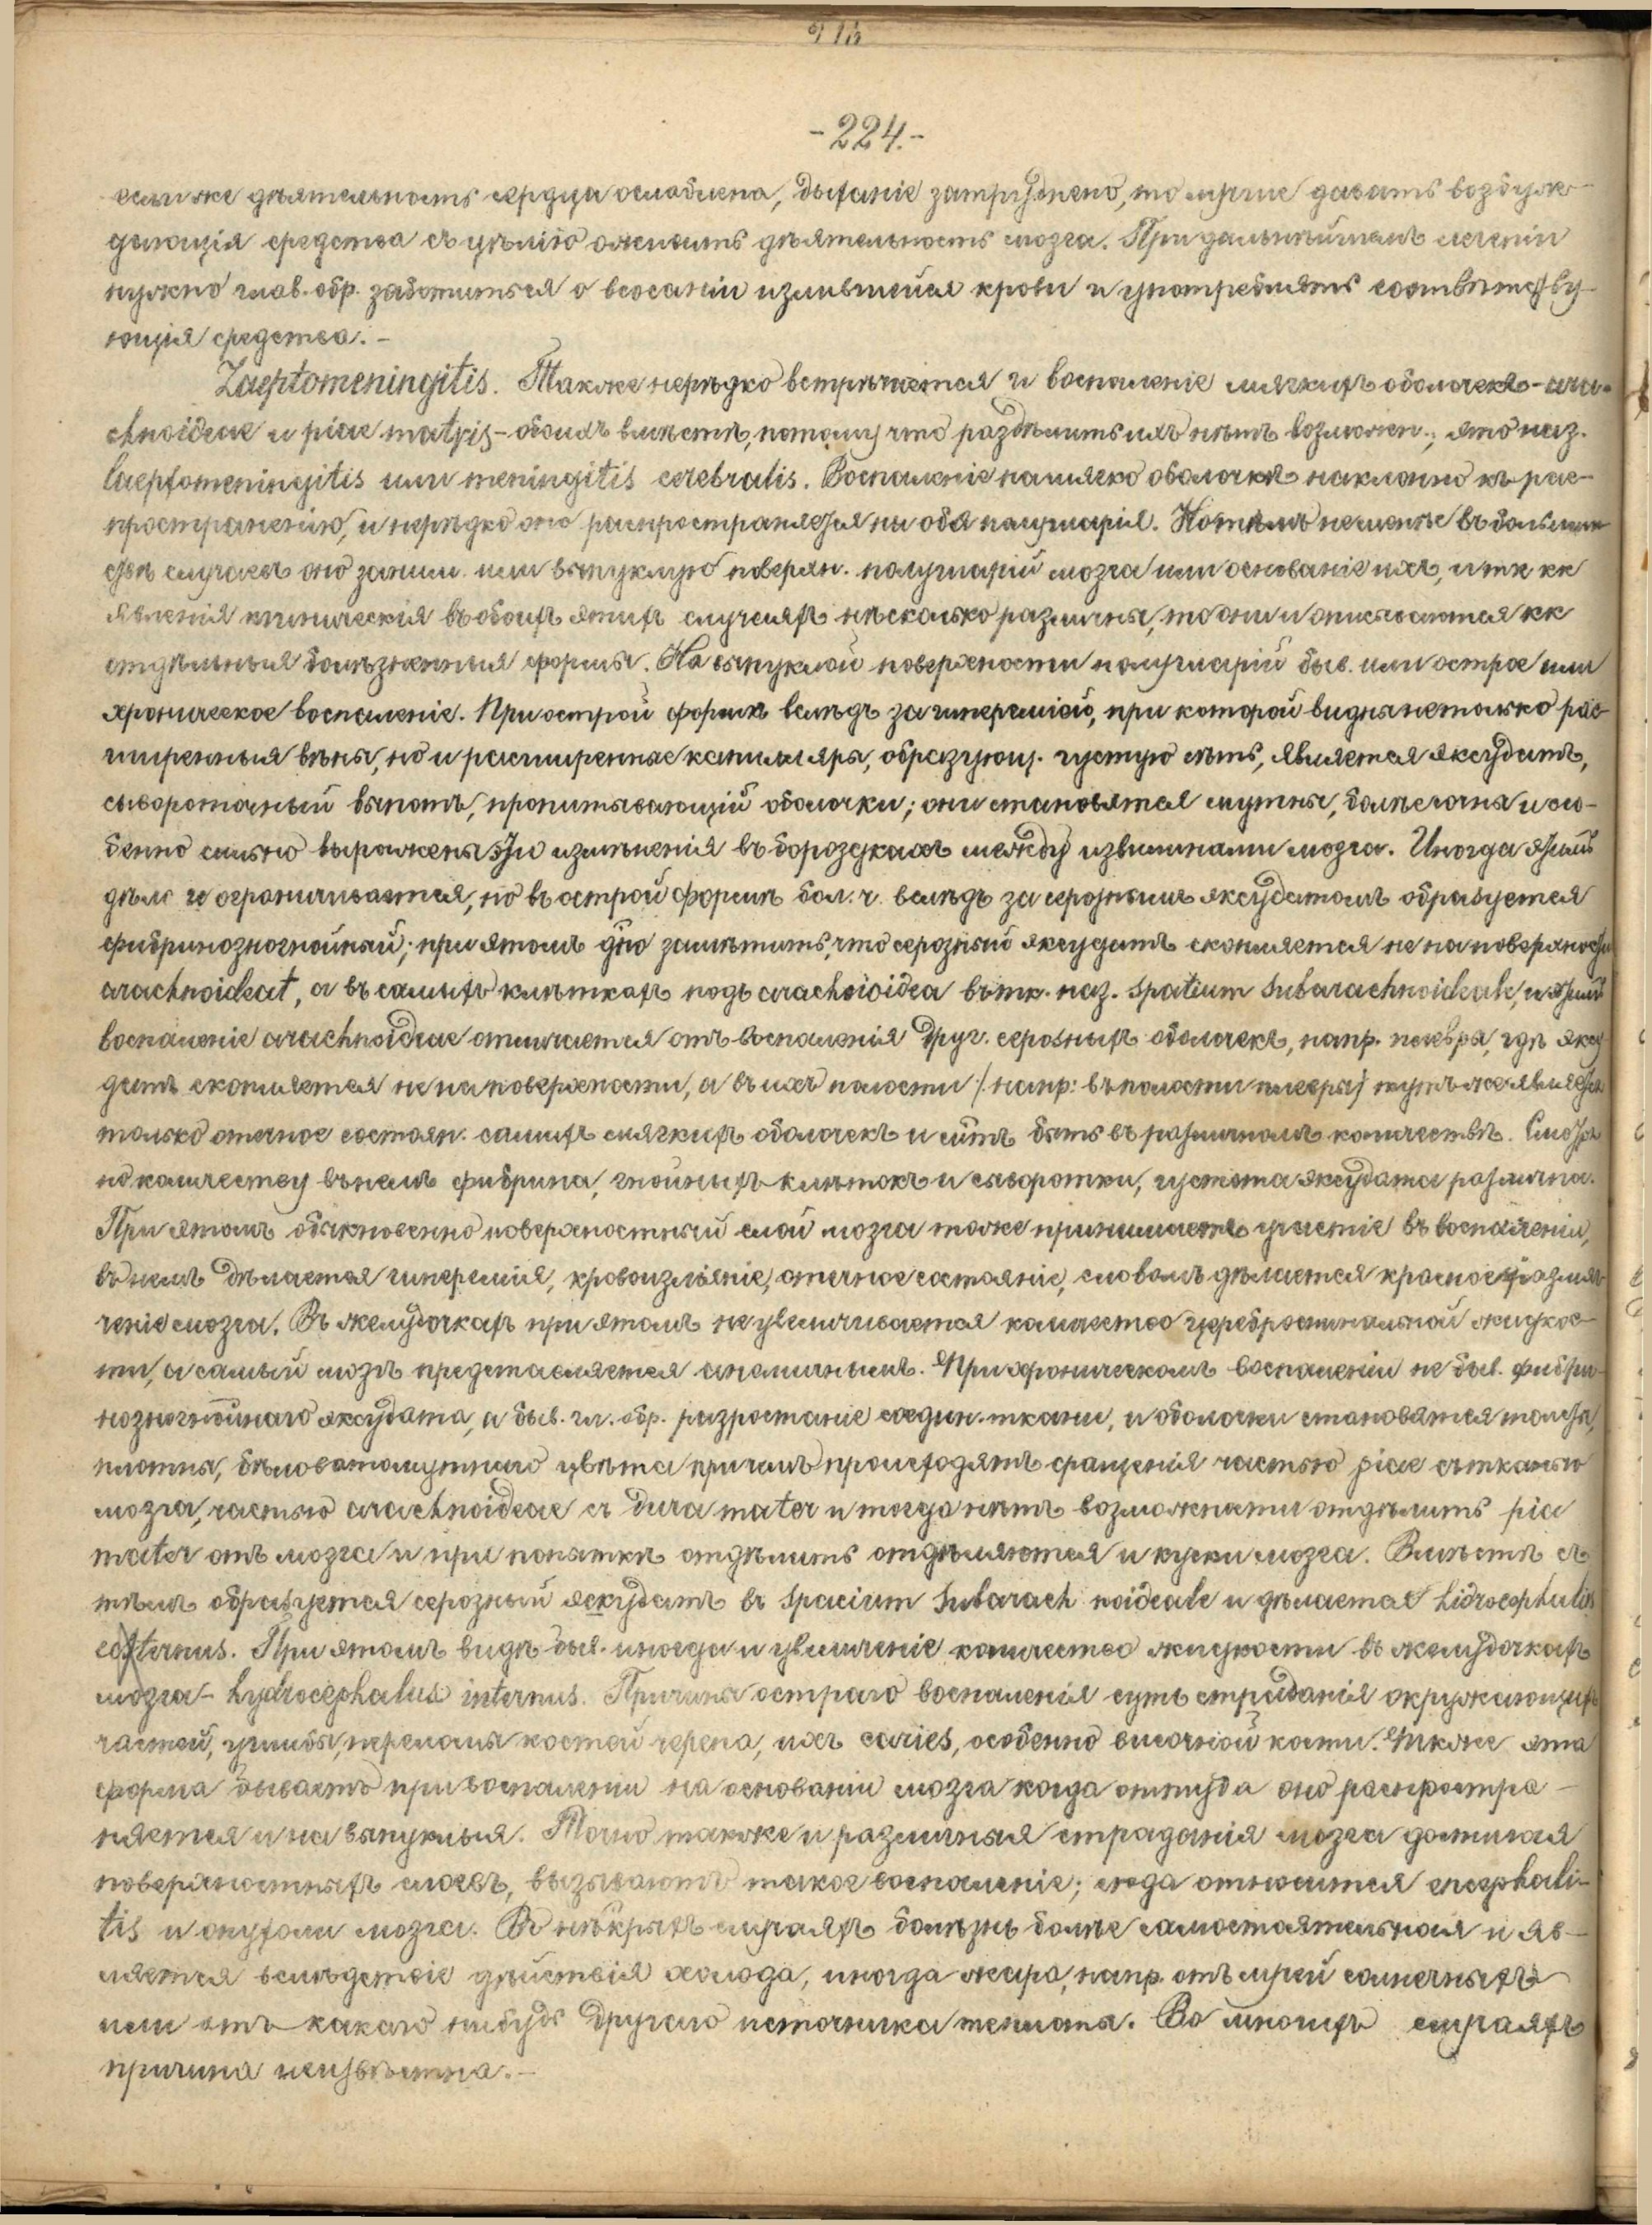 -224.-
если же дѣятельность сердца ослаблена, дыханіе затруднено, то лучше давать возбуж-
дающія средства съ цѣлію оживить дѣятельность мозга. При дальнѣйшемъ леченіи
нужно глав. обр. заботиться о всосаніи излившейся крови и употреблять соотвѣтству-
ющія средства. -
Laeptomeningitis. Также нерѣдко встрѣчается и воспаленіе мягкихъ оболочекъ - ara-
chnoideae и piae matris - обоихъ вмѣстѣ, потому что раздѣлить ихъ нѣтъ возможн.; это наз.
laeptomeningitis или meningitis cerebralis. Воспаленіе на мягкой оболочкѣ наклонно къ рас-
пространенію, и нерѣдко оно распространяется на оба полушарія. Но тѣмъ не менѣе въ большин-
ствѣ случаевъ оно заним. или выпуклую поверхн. полушарій мозга или основаніе ихъ, и тк кк
явленія клиническія въ обоихъ этихъ случаяхъ нѣсколько различны, то они и описываются кк
отдѣльныя болѣзненныя формы. На выпуклой поверхности полушарій быв. или острое или
хроническое воспаленіе. При острой формѣ вслѣдъ за гипереміею, при которой видны не только рас-
ширенныя вены, но и расширенные капилляры, образующ. густую сѣть, является эксудатъ,
сывороточный выпотъ, пропитывающій оболочки; они становятся мутны, бѣлесочны и осо-
бенно сильно выражены эти измѣненія въ бороздкахъ между извилинами мозга. Иногда этимъ
дѣло и ограничивается, но въ острой формѣ бол. ч. вслѣдъ за серознымъ эксудатомъ образуется
фибринозногнойный; при этомъ дно замѣтить, что серозный эксудатъ скопляется не на поверхности
arachnoideae, а въ самыхъ клѣткахъ подъ arachoioidea въ тк. наз. spatium subarachnoideale, и этимъ
воспаленіе arachnoideae отличается отъ воспаленія друг. серозныхъ оболочекъ, напр. плевры, гдѣ эксу-
датъ скопляется не на поверхности, а въ ихъ полости /напр: въ полости плевры/ тутъ же является
только отечное состоян. самихъ мягкихъ оболочекъ и мтъ быть въ различномъ количествѣ. Смотря
по количеству въ немъ фибрина, гнойныхъ клѣтокъ и сыворотки, густота эксудата различна.
При этомъ обыкновенно поверхностный слой мозга тоже принимаетъ участіе въ воспаленіи,
въ немъ дѣлается гиперемія, кровоизліяніе, отечное состояніе, словомъ дѣлается красное размяг-
ченіе мозга. Въ желудочкахъ при этомъ не увеличивается количество цереброспинальной жидкос-
ти, а самый мозгъ представляется анемичнымъ. При хроническомъ воспаленіи не быв. фибри-
нозногнойнаго эксудата, а быв. гл. обр. разростаніе соедин. ткани, и оболочки становятся толсты,
плотны, бѣловатомутнаго цвѣта причемъ происходятъ сращенія частью piae съ тканью
мозга, частью arachnoideae съ dura mater и тогда нѣтъ возможности отдѣлить pia
mater отъ мозга и при попыткѣ отдѣлить отдѣляются и куски мозга. Вмѣстѣ съ
тѣмъ образуется серозный эскудатъ въ spacium subarach noideale и дѣлается hidrocephalus
externus. При этомъ видѣ быв. иногда и увеличеніе количества жидкости въ желудочкахъ
мозга - hydrocephalus internus. Причина остраго воспаленія суть страданія окружающихъ
частей, ушибы, переломы костей черепа, ихъ caries, особенно височной кости. Также эта
форма бываетъ при воспаленіи на основаніи мозга когда оттуда оно распростра-
няется и на выпуклыя. Точно также и различныя страданія мозга достигая
поверхностныхъ слоевъ, вызываютъ такое воспаленіе; сюда относится encephali-
tis и опухоли мозга. Въ нѣкрыхъ случаяхъ болѣзнь болѣе самостоятельная и яв-
ляется вслѣдствіе дѣйствія холода, иногда жара, напр. отъ лучей солнечныхъ
или отъ какаго нибудь другаго источника теплоты. Во многихъ случаяхъ
причина неизвѣстна. -